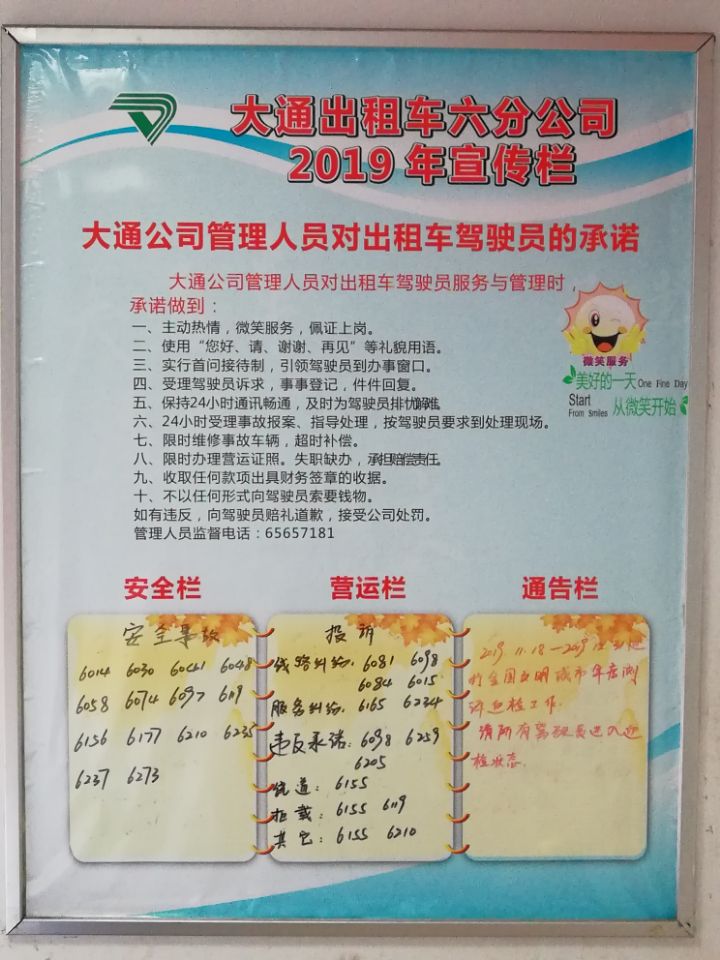 大通出租车六分公司
2019 年宣传栏
大通公司管理人员对出租车驾驶员的承诺
大通公司管理人员对出租车驾驶员服务与管理时，
承诺做到：
一、主动热情，微笑服务，佩证上岗。
二、使用“您好、请、谢谢、再见”等礼貌用语。
三、实行首问接待制，引领驾驶员到办事窗口。
四、受理驾驶员诉求，事事登记，件件回复。
五、保持24小时通讯畅通，及时为驾驶员排忧解难。
六、24小时受理事故报案、指导处理，按驾驶员要求到处理现场。
七、限时维修事故车辆，超时补偿。
八、限时办理营运证照。失职缺办，承担赔偿责任。
九、收取任何款项出具财务签章的收据。
十、不以任何形式向驾驶员索要钱物。
如有违反，向驾驶员赔礼道歉，接受公司处罚。
管理人员监督电话：65657181
微笑服务
美好的一天 One Fine Day
Start
From Smiles 从微笑开始
安全栏
安全事故
6014 6030 6041 6048
6058 6074 6097 6119
6156 6177 6210 6235
6237 6273
营运栏
投诉
线路纠纷：6081 6098
6084 6015
服务纠纷：6165 6234
违反承诺：6098 6259
6205
绕道：6155
拒载：6155 6119
其它：6155 6210
通告栏
2019.11.18—2019
全国文明城市年度测
评迎检工作.
请所有驾驶员进入迎
检状态.